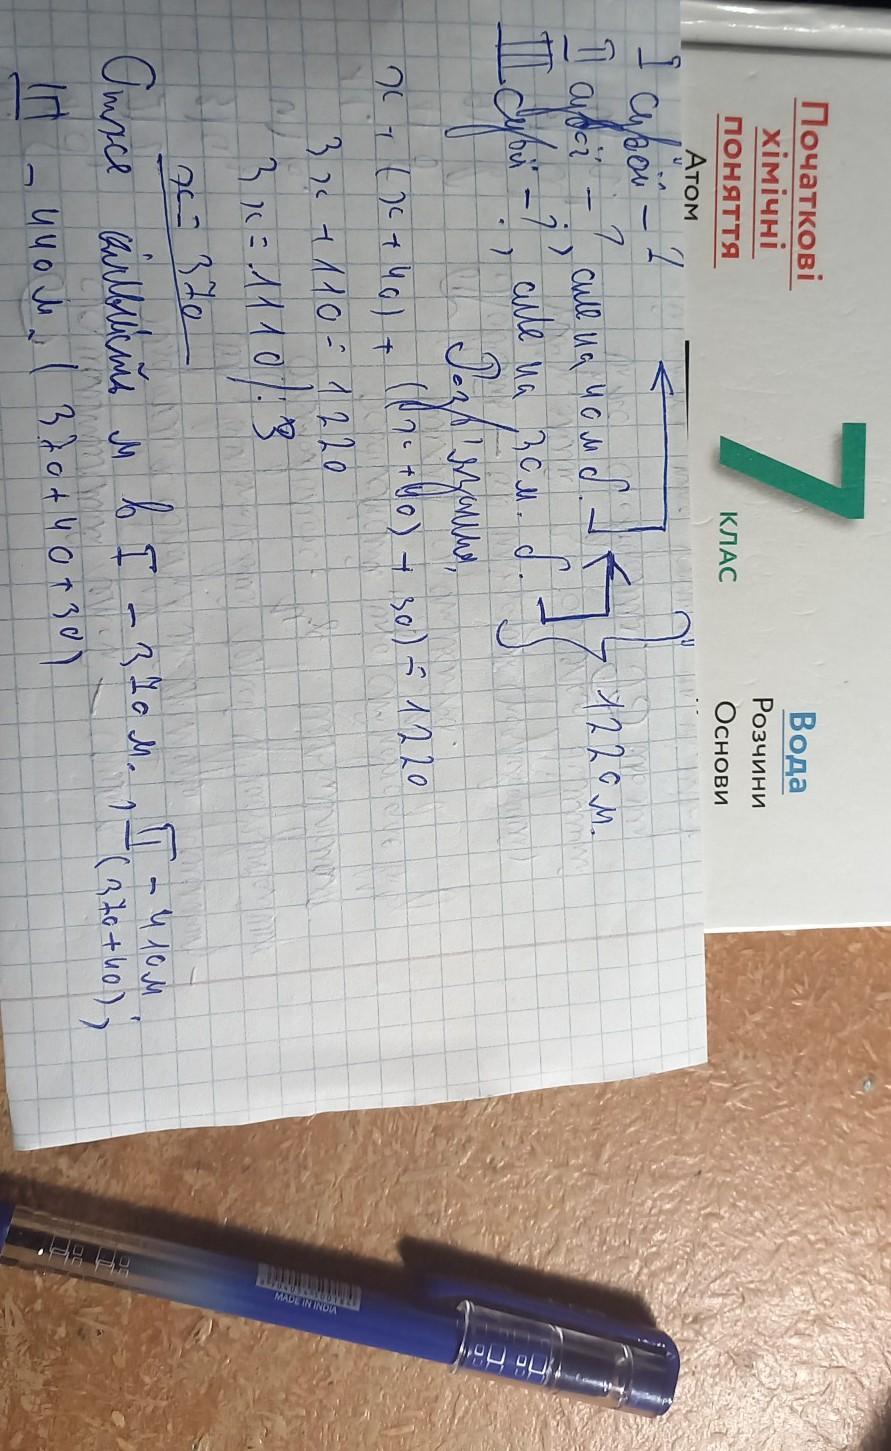 Початкові
хімічні
поняття
Атом
7
КЛАС
Вода
Розчини
Основи
I сувой - ?
II сувій - ?, але на 40 м б.
III сувій - ?, але на 30 м. б.
1220 м.
Розв'язання,
x + (x + 40) + ((x + 40) + 30) = 1220
3x + 110 = 1220
3x = 1110 / : 3
x = 370
Отже кількість м в I - 370 м., II - 410 м
(370 + 40),
III - 440 м. (370 + 40 + 30)
MADE IN INDIA